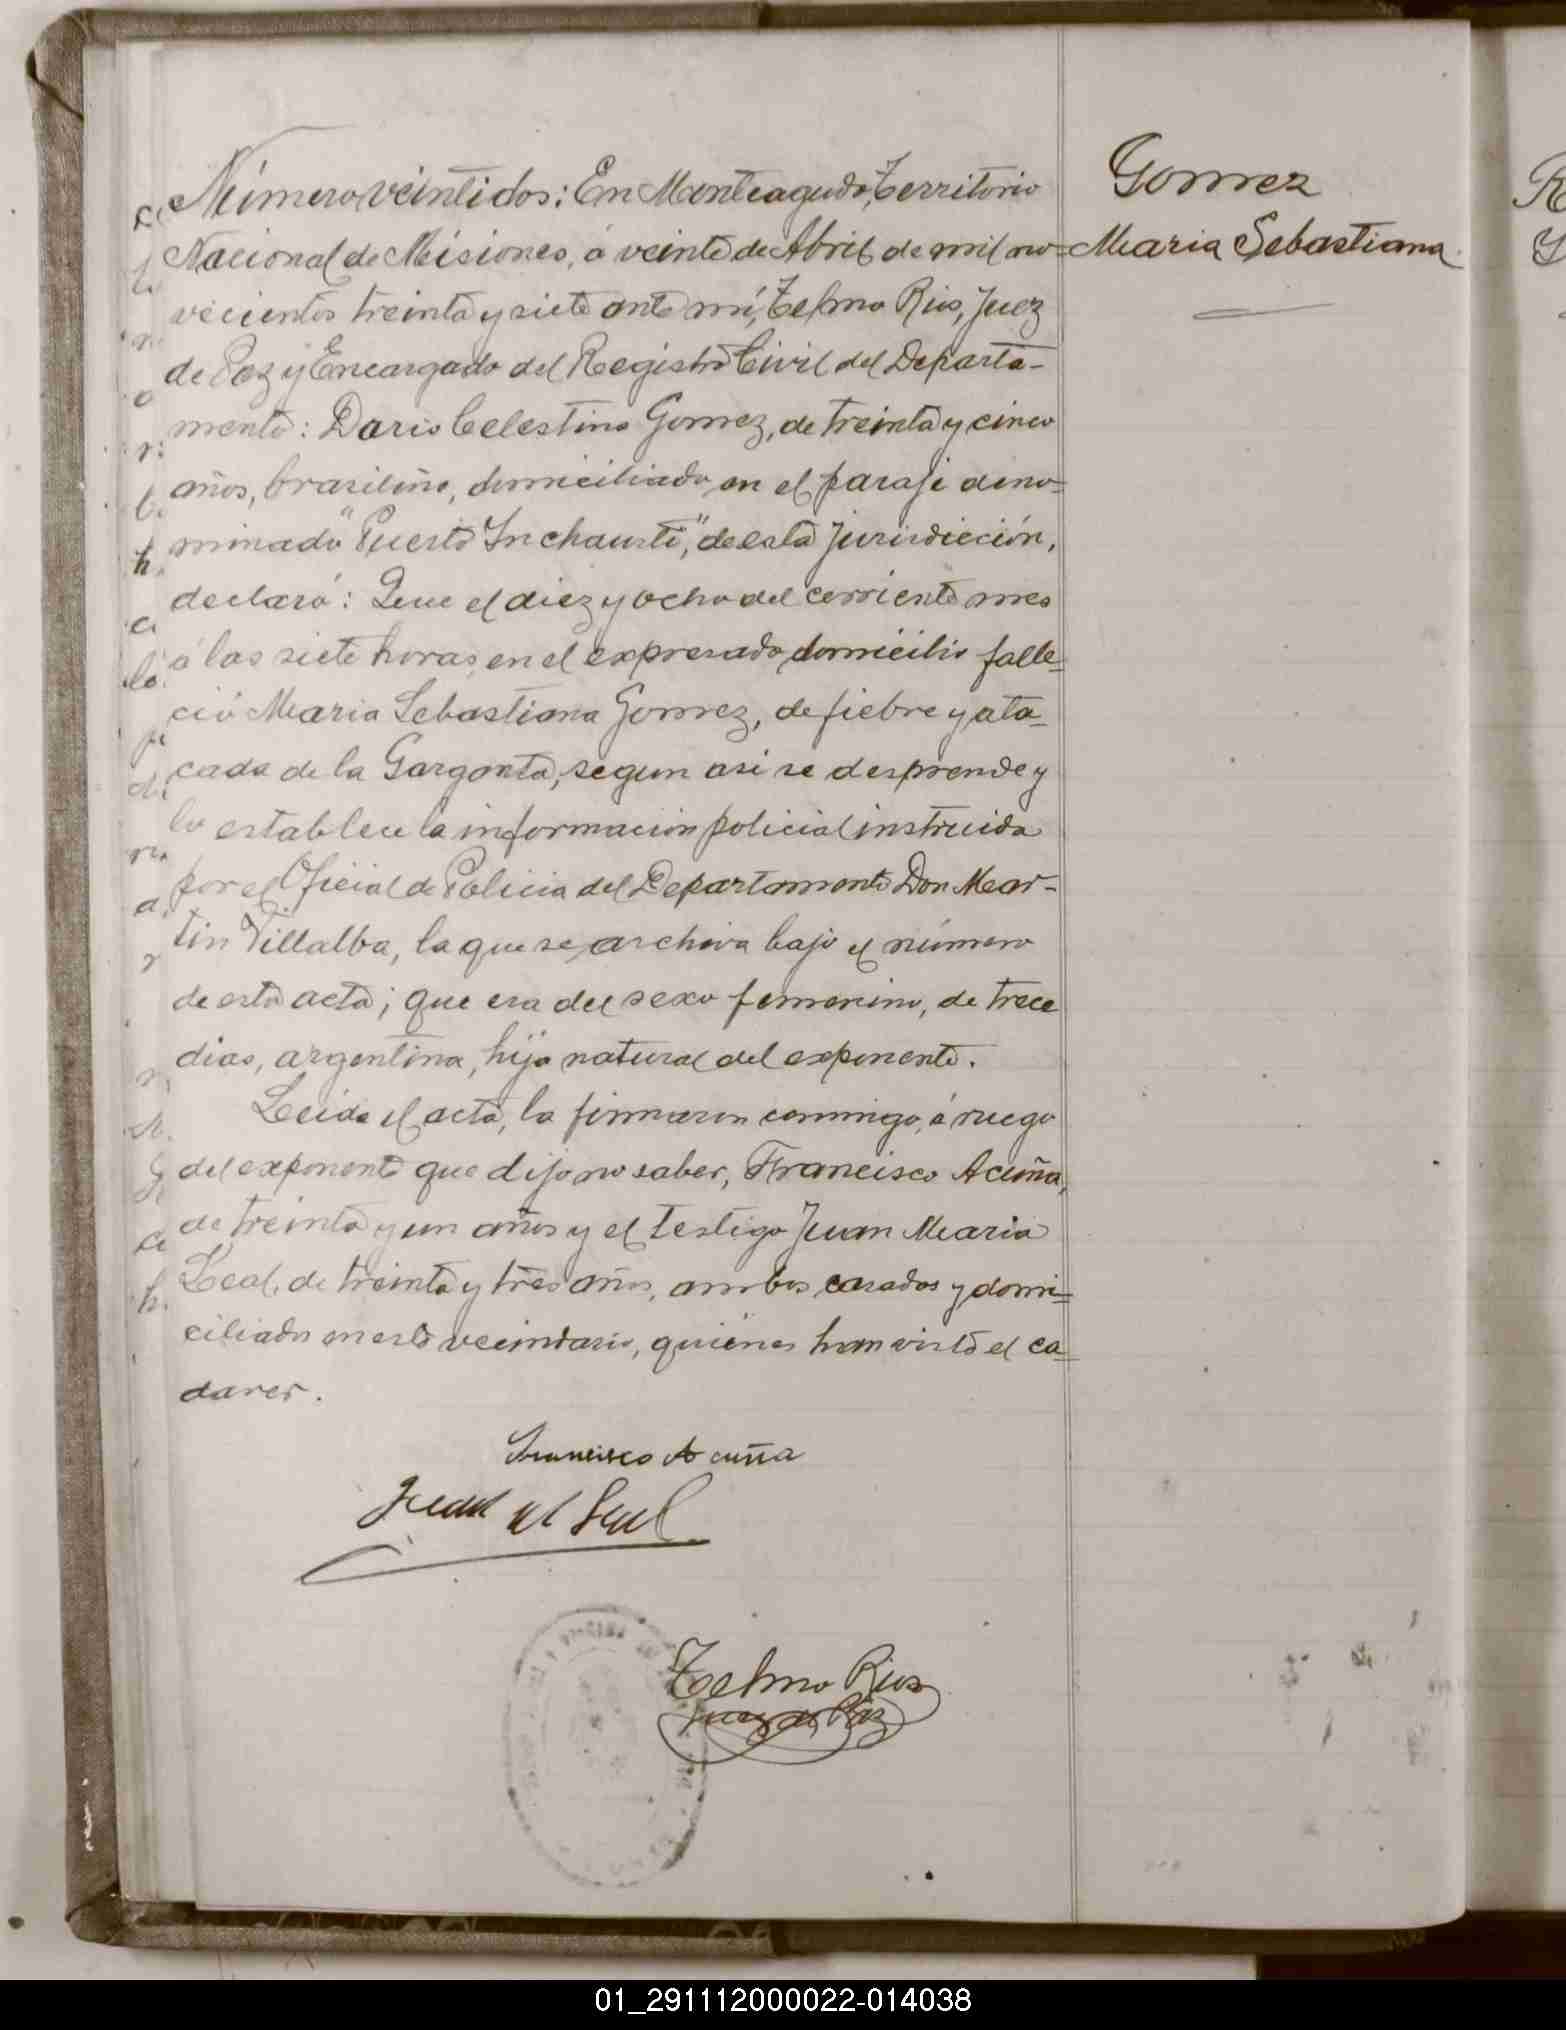 Número veintidos: En Monteagudo, Territorio
Nacional de Misiones, á veinte de Abril de mil no=
vecientos treinta y siete ante mí, Telmo Rios, Juez
de Paz y Encargado del Registro Civil del Departa-
mento: Dario Celestino Gomez, de treinta y cinco
años, brasileño, domiciliado en el paraje deno=
minado "Puerto Inchausti", de esta jurisdicción,
declaró: Que el diez y ocho del corriente mes
á las siete horas, en el expresado domicilio falle=
ció Maria Sebastiana Gomez, de fiebre y ata=
cada de la Garganta, segun asi se desprende y
lo establece la informacion policial instruida
por el Oficial de Policia del Departamento Don Mar-
tin Villalba, la que se archiva bajo el número
de esta acta; que era del sexo femenino, de trece
dias, argentina, hija natural del exponente.
Leida el acta, la firmaron conmigo, á ruego
del exponente que dijo no saber, Francisco Acuña,
de treinta y un años y el testigo Juan Maria
Leal, de treinta y tres años, ambos casados y domi=
ciliados en este vecindario, quiénes han visto el ca=
daver.
Francisco Acuña
Juan M Leal
Telmo Rios
Juez de Paz
Gomez
Maria Sebastiana
01_291112000022-014038